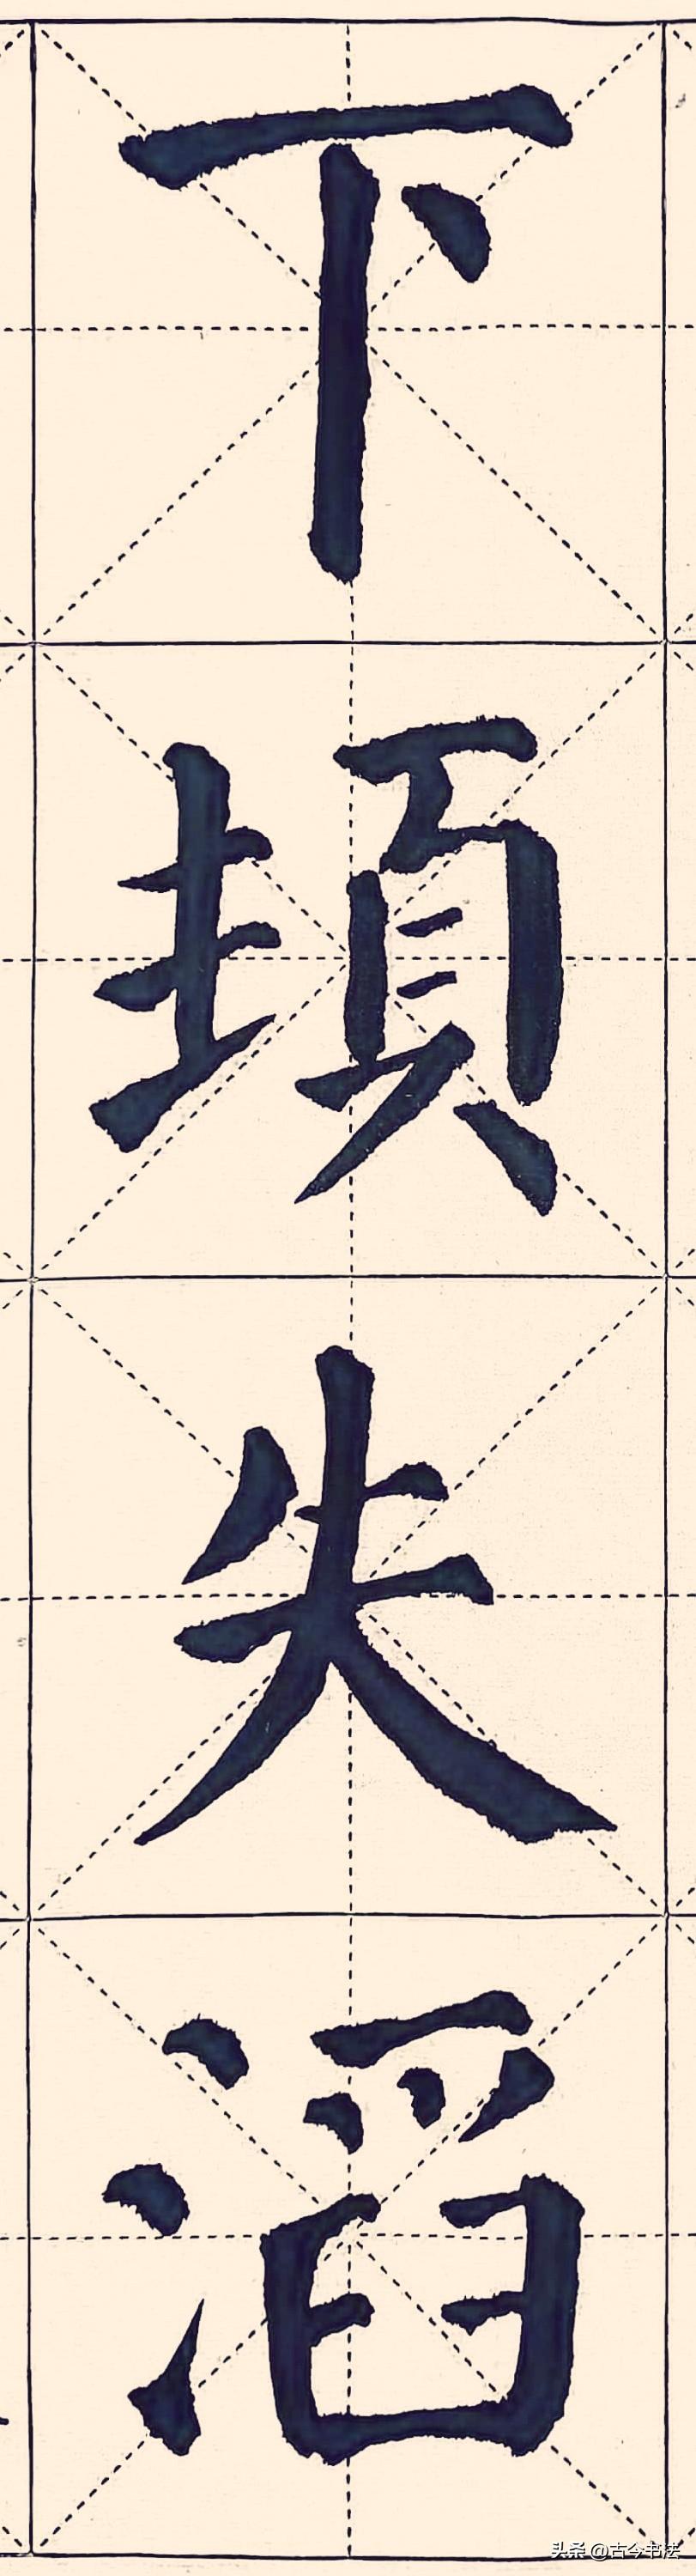 下
失
滔
头条 @古今书法